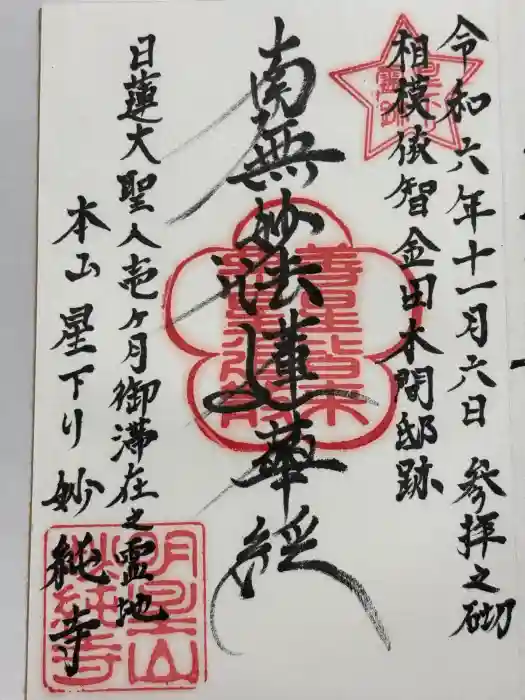 令和六年十一月六日 参拝之砌
相模依智 金田本間邸跡
南無妙法蓮華経
日蓮大聖人壱ヶ月御滞在之霊地
本山星下り妙純寺
明星山
妙純寺